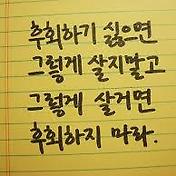 후회하기 싫으면
그렇게 살지말고
그렇게 살거면
후회하지 마라.